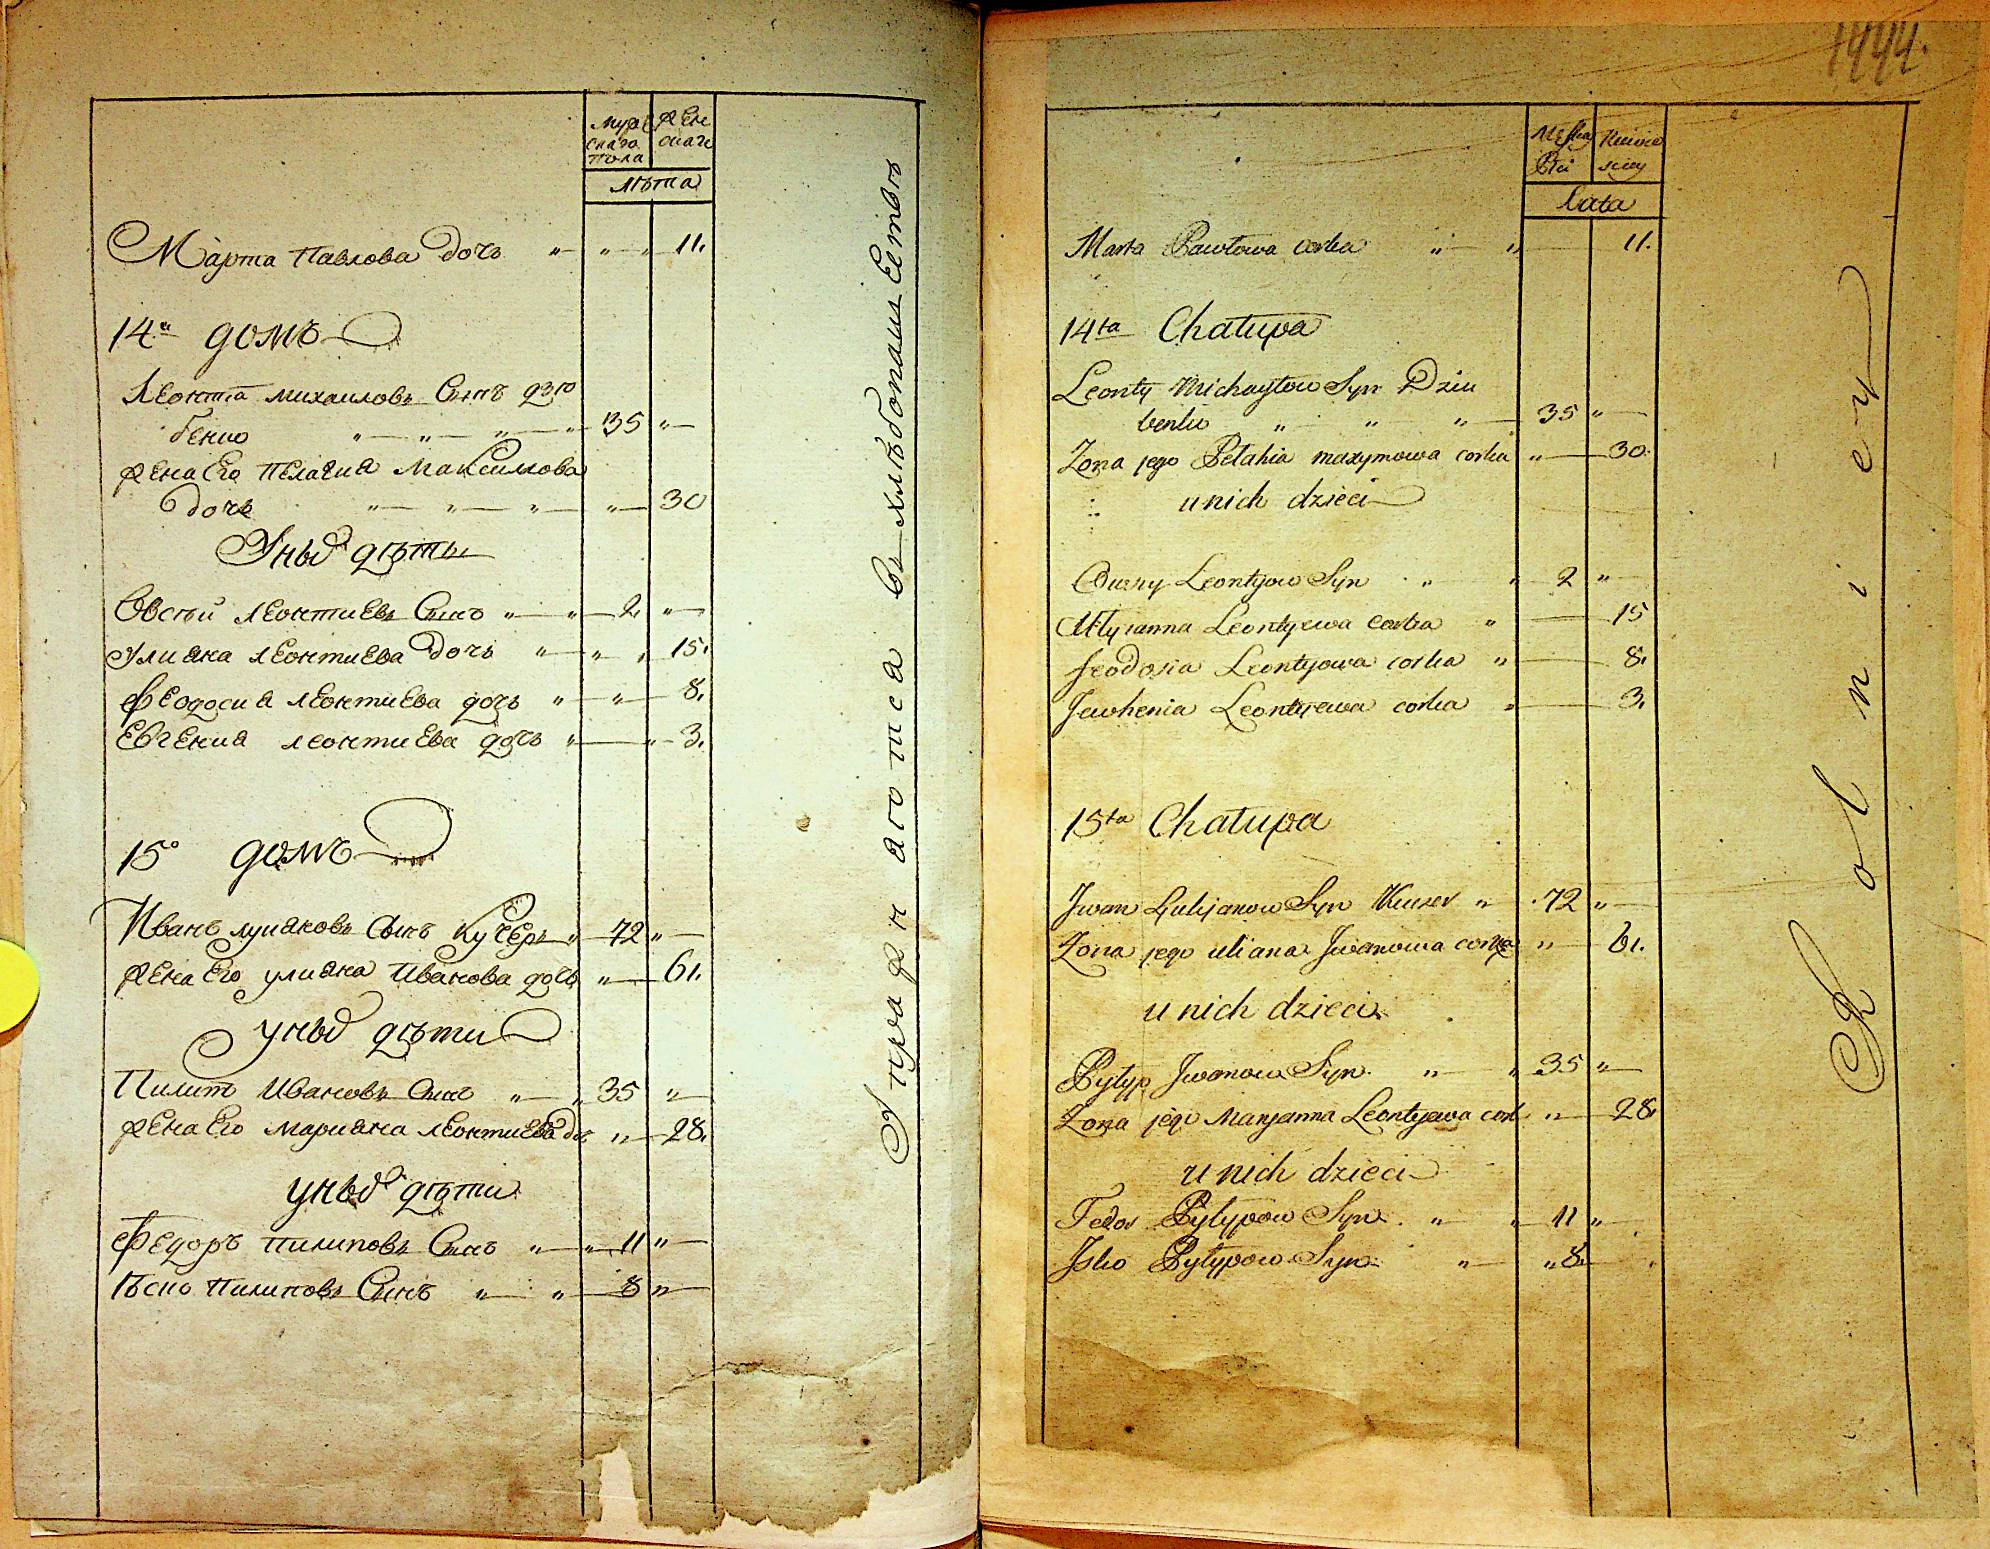 Муж
скаго
пола
жен
скаго
лѣта
Марта Павлова дочь " " " 11.
14й домъ
Леонтій Михаиловъ Сынъ Дзю
бенко " " " " 35 "
жена Его Пелагия Максимова
дочь " " " " 30
Унихъ дѣти
Овсѣй Леонтиевъ Сынъ " " 2. "
Улияна Леонтиева дочь " " " 15.
Феодосия Леонтиева дочь " " 8.
Евгения Леонтиева дочь " " 3.
15й домъ
Иванъ Лукяновъ Сынъ Кучеръ " 72 "
жена Его улияна Иванова дочь " 61.
унихъ дѣти
Пилипъ Ивановъ Сынъ " " 35 "
жена Его марияна леонтиева до " 28.
унихъ дѣти
Федоръ Пилиповъ Сынъ " " 11 "
Ѣсно Пилиповъ Сынъ " " 8 "
Упражняютса въ хлѣбопашЕствѣ
1444.
Męzka
Płci
Lata
Marta Pawłowa corka " " 11.
14ta Chałupa
Leonty Michayłow Syn Dziu
benko " " " 35 "
Zona jego Pelahia maxymowa corka " 30.
u nich dzieci
Owsey Leontyow Syn " " 2 "
Ulyianna Leontyewa corka " 15
feodosia Leontyowa corka " 8.
Jewhenia Leontyewa corka " 3.
15ta Chałupa
Jwan Syn Kuczer " 72 "
Zona jego uliana Jwanowa corka " 61.
u nich dzieci
Pyłyp Jwanow Syn " " 35 "
Zona jego Maryanna Leontyewa cork " 28.
u nich dzieci
Fedor Pyłypow Syn " " 11 "
Jsko Pyłypow Syn " " 8.
Rolniey